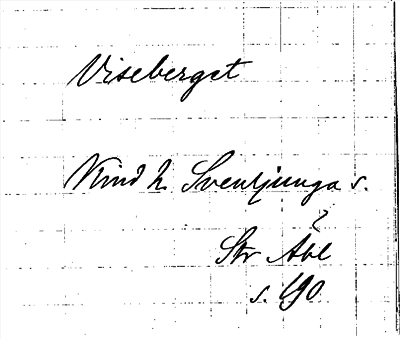 Viseberget
Kind h. Svenljunga s.
?
Str Åbl
s. 190